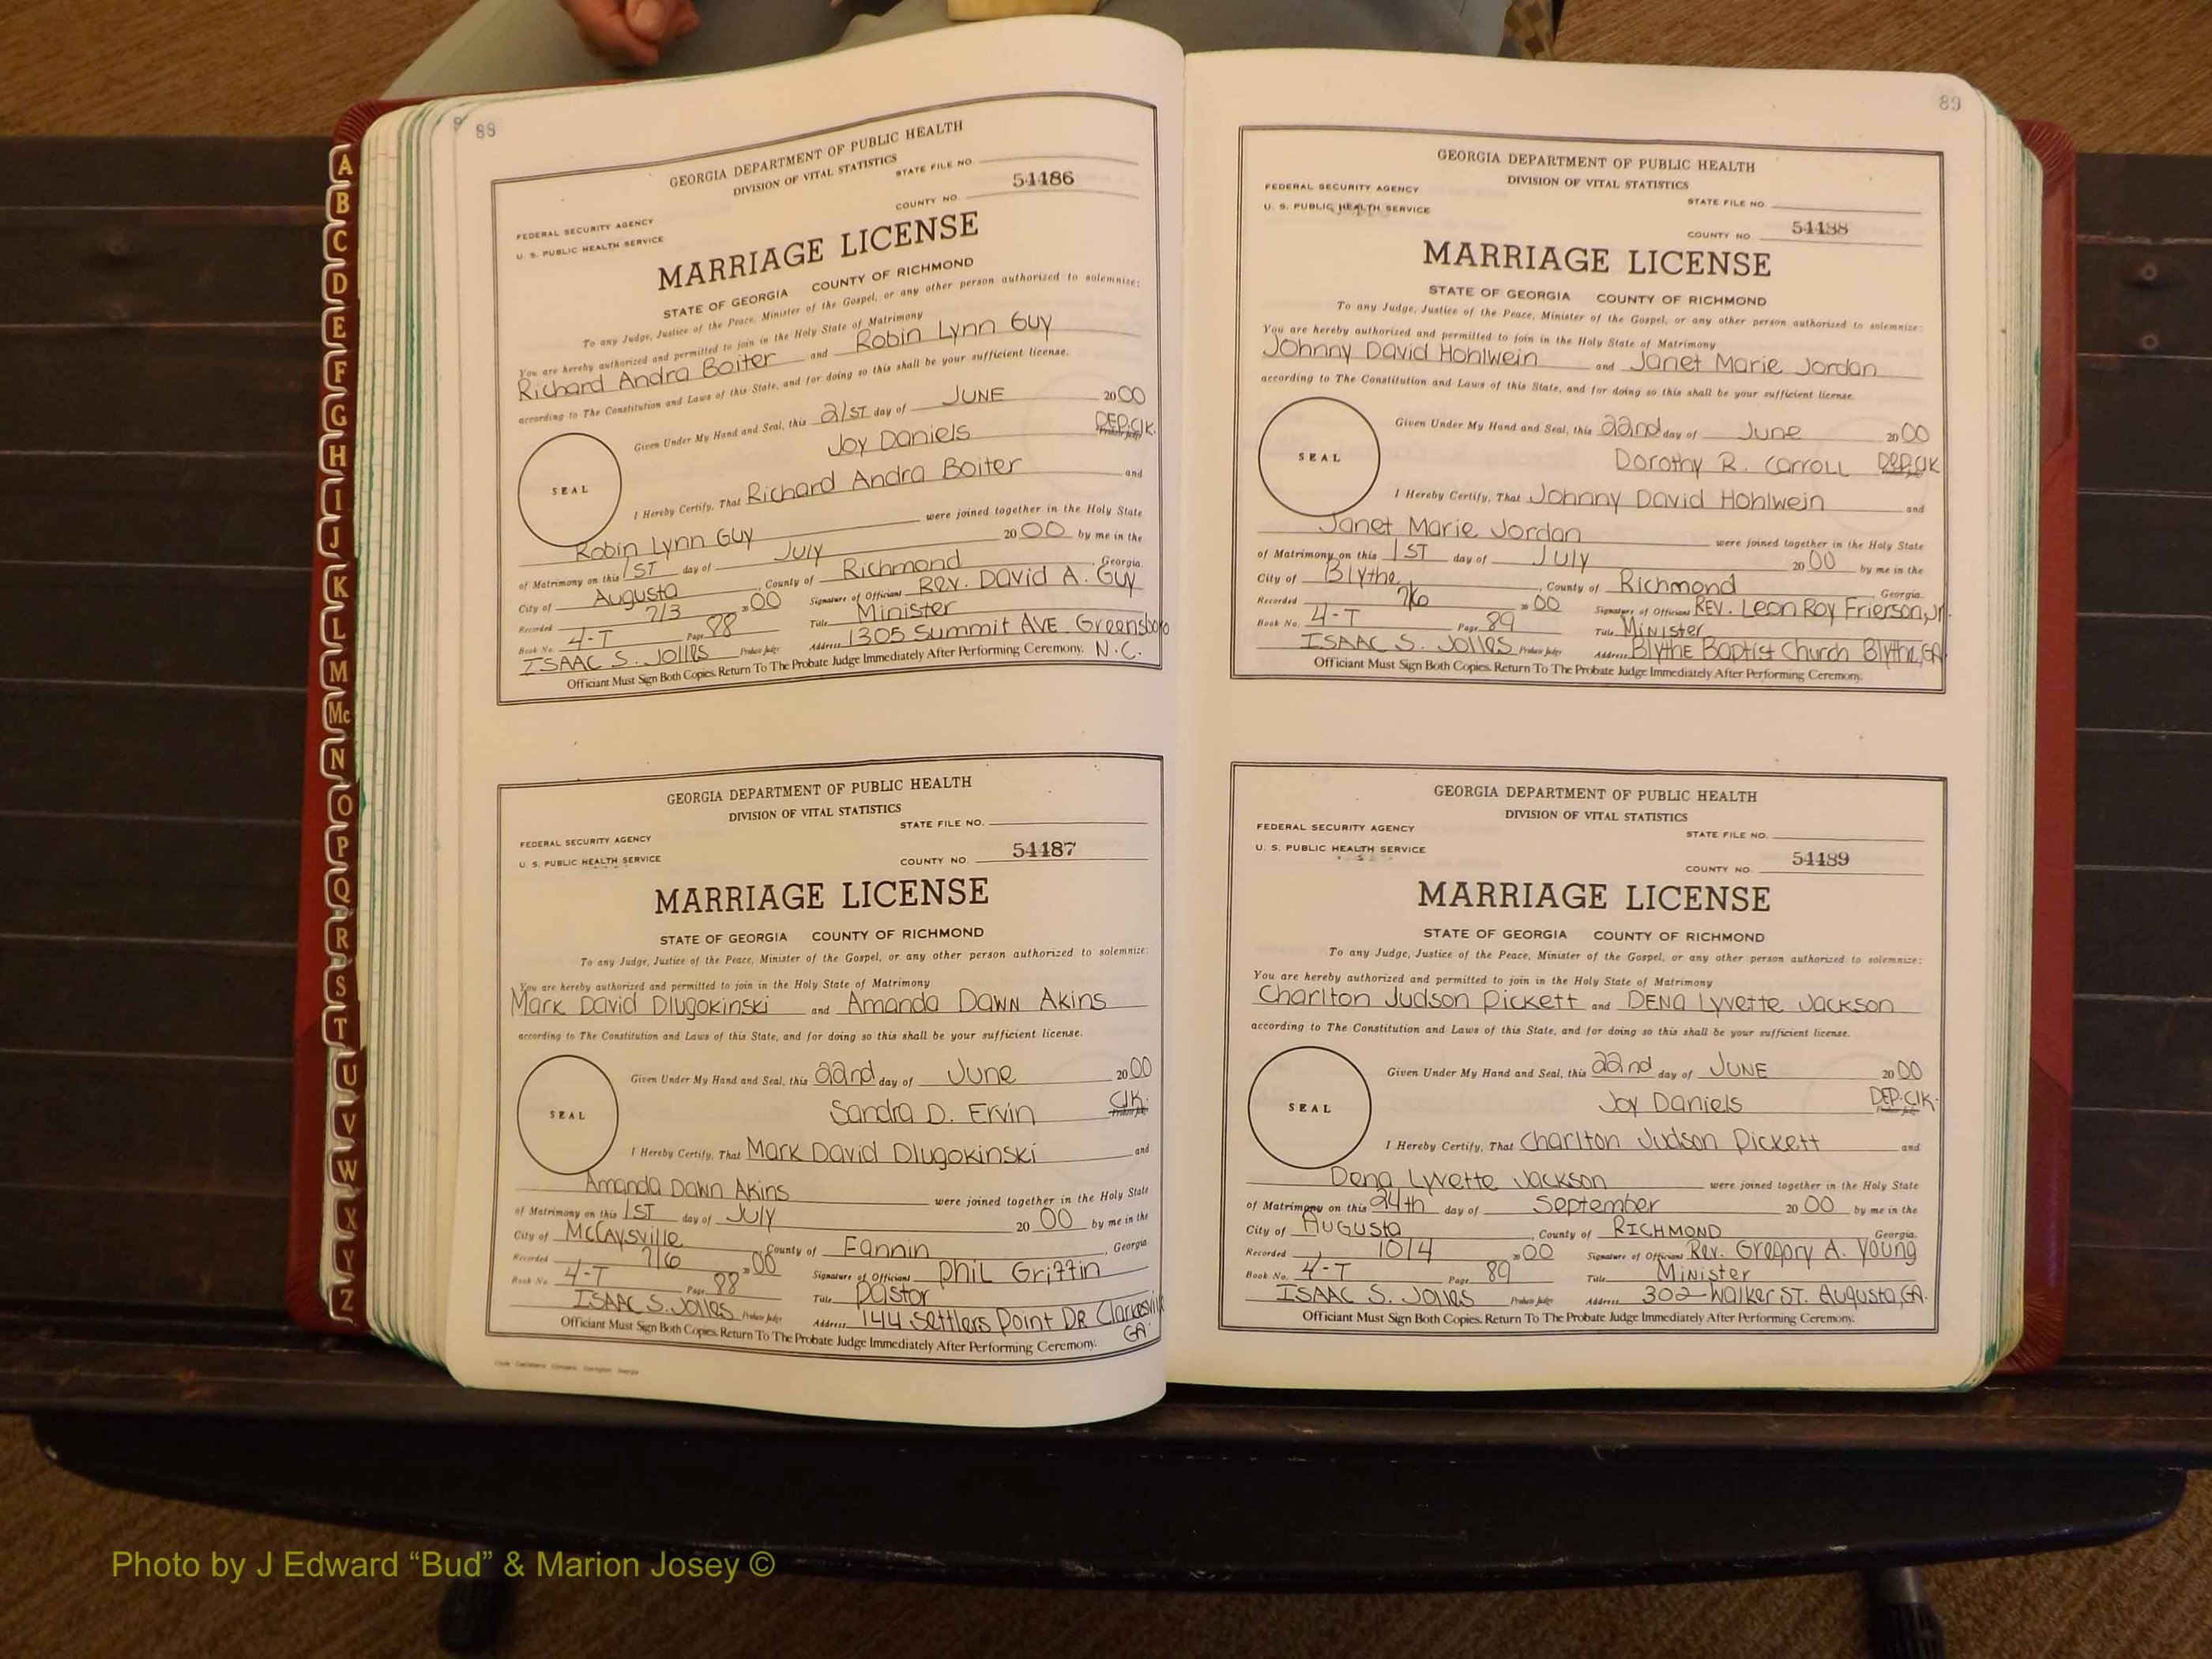 A
B
C
D
E
F
G
H
I
J
K
L
M
Mc
N
O
P
Q
R
S
T
U
V
W
X
Y
Z
88
GEORGIA DEPARTMENT OF PUBLIC HEALTH
DIVISION OF VITAL STATISTICS
STATE FILE NO.
FEDERAL SECURITY AGENCY
U. S. PUBLIC HEALTH SERVICE
COUNTY NO. 54486
MARRIAGE LICENSE
STATE OF GEORGIA COUNTY OF RICHMOND
To any Judge, Justice of the Peace, Minister of the Gospel, or any other person authorized to solemnize:
You are hereby authorized and permitted to join in the Holy State of Matrimony
Richard Andra Boiter and Robin Lynn Guy
according to The Constitution and Laws of this State, and for doing so this shall be your sufficient license.
Given Under My Hand and Seal, this 21ST day of JUNE 2000
Joy Daniels DEP.Clk. Probate Judge
SEAL
I Hereby Certify, That Richard Andra Boiter and
Robin Lynn Guy were joined together in the Holy State
of Matrimony on this 1ST day of July 2000 by me in the
City of Augusta, County of Richmond, Georgia.
Recorded 7/3 2000 Signature of Officiant Rev. David A. Guy
Book No. 4-T Page 88 Title Minister
ISAAC S. Jolles Probate Judge Address 1305 Summit AVE. Greensboro N.C.
Officiant Must Sign Both Copies. Return To The Probate Judge Immediately After Performing Ceremony.
GEORGIA DEPARTMENT OF PUBLIC HEALTH
DIVISION OF VITAL STATISTICS
STATE FILE NO.
FEDERAL SECURITY AGENCY
U. S. PUBLIC HEALTH SERVICE
COUNTY NO. 54487
MARRIAGE LICENSE
STATE OF GEORGIA COUNTY OF RICHMOND
To any Judge, Justice of the Peace, Minister of the Gospel, or any other person authorized to solemnize:
You are hereby authorized and permitted to join in the Holy State of Matrimony
Mark David Dlugokinski and Amanda Dawn Akins
according to The Constitution and Laws of this State, and for doing so this shall be your sufficient license.
Given Under My Hand and Seal, this 22nd day of June 2000
Sandra D. Ervin Clk. Probate Judge
SEAL
I Hereby Certify, That Mark David Dlugokinski and
Amanda Dawn Akins were joined together in the Holy State
of Matrimony on this 1ST day of July 2000 by me in the
City of McCaysville, County of Fannin, Georgia.
Recorded 7/6 2000 Signature of Officiant Phil Griffin
Book No. 4-T Page 88 Title Pastor
ISAAC S. Jolles Probate Judge Address 144 Settlers Point DR Clarkesville GA.
Officiant Must Sign Both Copies. Return To The Probate Judge Immediately After Performing Ceremony.
89
GEORGIA DEPARTMENT OF PUBLIC HEALTH
DIVISION OF VITAL STATISTICS
FEDERAL SECURITY AGENCY
STATE FILE NO.
U. S. PUBLIC HEALTH SERVICE
COUNTY NO. 54488
MARRIAGE LICENSE
STATE OF GEORGIA COUNTY OF RICHMOND
To any Judge, Justice of the Peace, Minister of the Gospel, or any other person authorized to solemnize:
You are hereby authorized and permitted to join in the Holy State of Matrimony
Johnny David Hohlwein and Janet Marie Jordan
according to The Constitution and Laws of this State, and for doing so this shall be your sufficient license.
Given Under My Hand and Seal, this 22nd day of June 2000
Dorothy R. Carroll DEP.Clk
SEAL
I Hereby Certify, That Johnny David Hohlwein and
Janet Marie Jordan were joined together in the Holy State
of Matrimony on this 1ST day of July 2000 by me in the
City of Blythe, County of Richmond Georgia.
Recorded 7/6 2000 Signature of Officiant REV. Leon Roy Frierson, Jr.
Book No. 4-T Page 89 Title Minister
ISAAC S. Jolles Probate Judge Address Blythe Baptist Church Blythe, GA
Officiant Must Sign Both Copies. Return To The Probate Judge Immediately After Performing Ceremony.
GEORGIA DEPARTMENT OF PUBLIC HEALTH
DIVISION OF VITAL STATISTICS
FEDERAL SECURITY AGENCY
STATE FILE NO.
U. S. PUBLIC HEALTH SERVICE
COUNTY NO. 54489
MARRIAGE LICENSE
STATE OF GEORGIA COUNTY OF RICHMOND
To any Judge, Justice of the Peace, Minister of the Gospel, or any other person authorized to solemnize:
You are hereby authorized and permitted to join in the Holy State of Matrimony
Charlton Judson Pickett and DENA Lyvette Jackson
according to The Constitution and Laws of this State, and for doing so this shall be your sufficient license.
Given Under My Hand and Seal, this 22nd day of JUNE 2000
Joy Daniels DEP.Clk. Probate Judge
SEAL
I Hereby Certify, That Charlton Judson Pickett and
Dena Lyvette Jackson were joined together in the Holy State
of Matrimony on this 24th day of September 2000 by me in the
City of Augusta, County of RICHMOND Georgia.
Recorded 10/4 2000 Signature of Officiant Rev. Gregory A. Young
Book No. 4-T Page 89 Title Minister
ISAAC S. Jolles Probate Judge Address 302 Walker ST. Augusta, GA.
Officiant Must Sign Both Copies. Return To The Probate Judge Immediately After Performing Ceremony.
Photo by J Edward “Bud” & Marion Josey ©